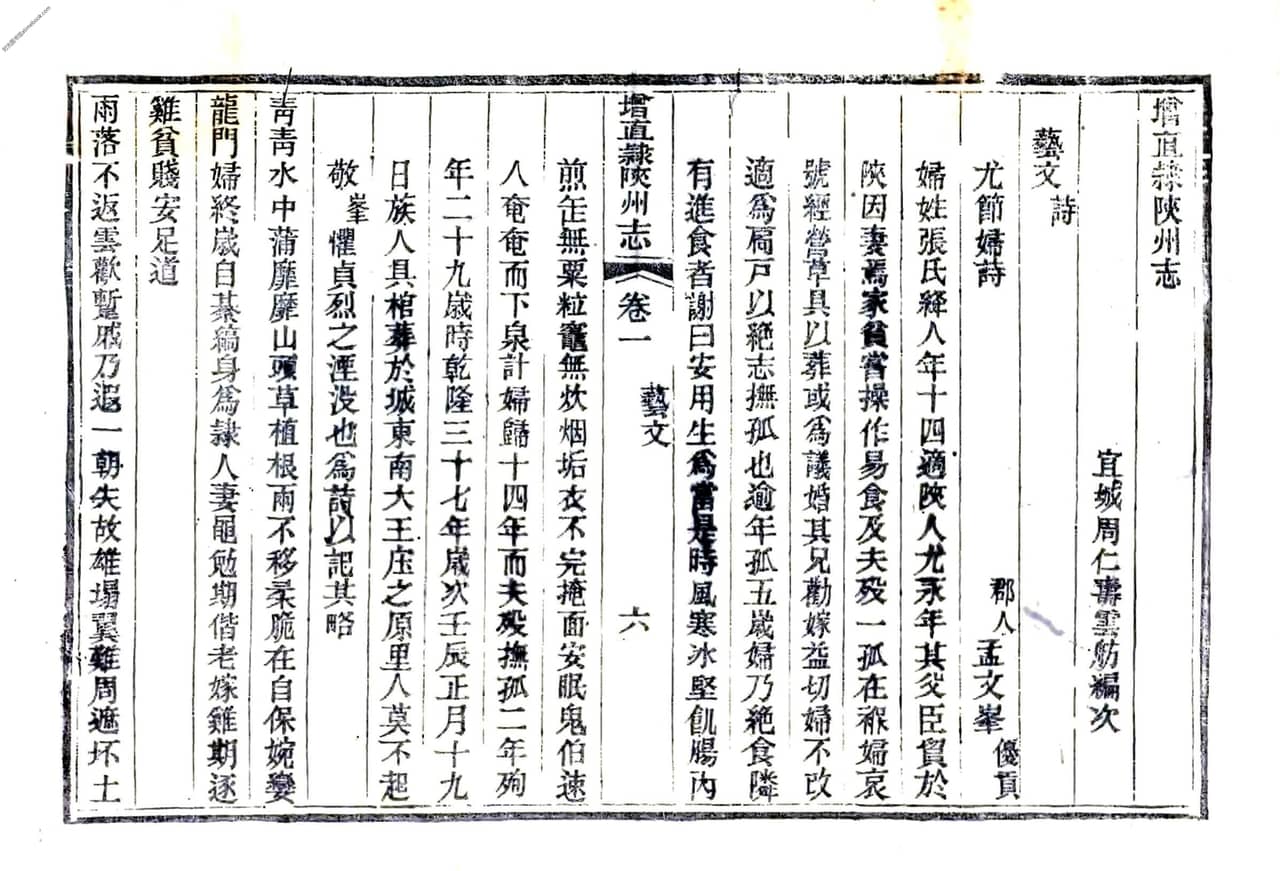 增直隸陝州志
宜城周仁壽雲舫編次
藝文詩
尤節婦詩 郡人孟文峯優貢
婦姓張氏絳人年十四適陝人尤永年其父臣貿於
陝因妻焉家貧嘗操作易食及夫歿一孤在褓婦哀
號經營草具以葬或爲議婚其兄勸嫁益切婦不改
適爲扃戸以絶志撫孤也逾年孤五歲婦乃絶食隣
有進食者謝曰安用生爲當是時風寒冰堅飢腸內
煎缶無粟粒竈無炊烟垢衣不完掩面安眠鬼伯速
人奄奄而下泉計婦歸十四年而夫歿撫孤二年殉
年二十九歲時乾隆三十七年歲次壬辰正月十九
日族人具棺葬於城東南大王庄之原里人莫不起
敬峯懼貞烈之湮没也爲詩以記其略
青青水中蒲靡靡山頭草植根兩不移柔脆在自保婉孌
龍門婦終歲自綦縞身爲隸人妻黽勉期偕老嫁雞期逐
雞貧賤安足道
雨落不返雲歡暫戚乃遐一朝失故雄塌翼難周遮坏土
增直隸陝州志 卷一 藝文 六